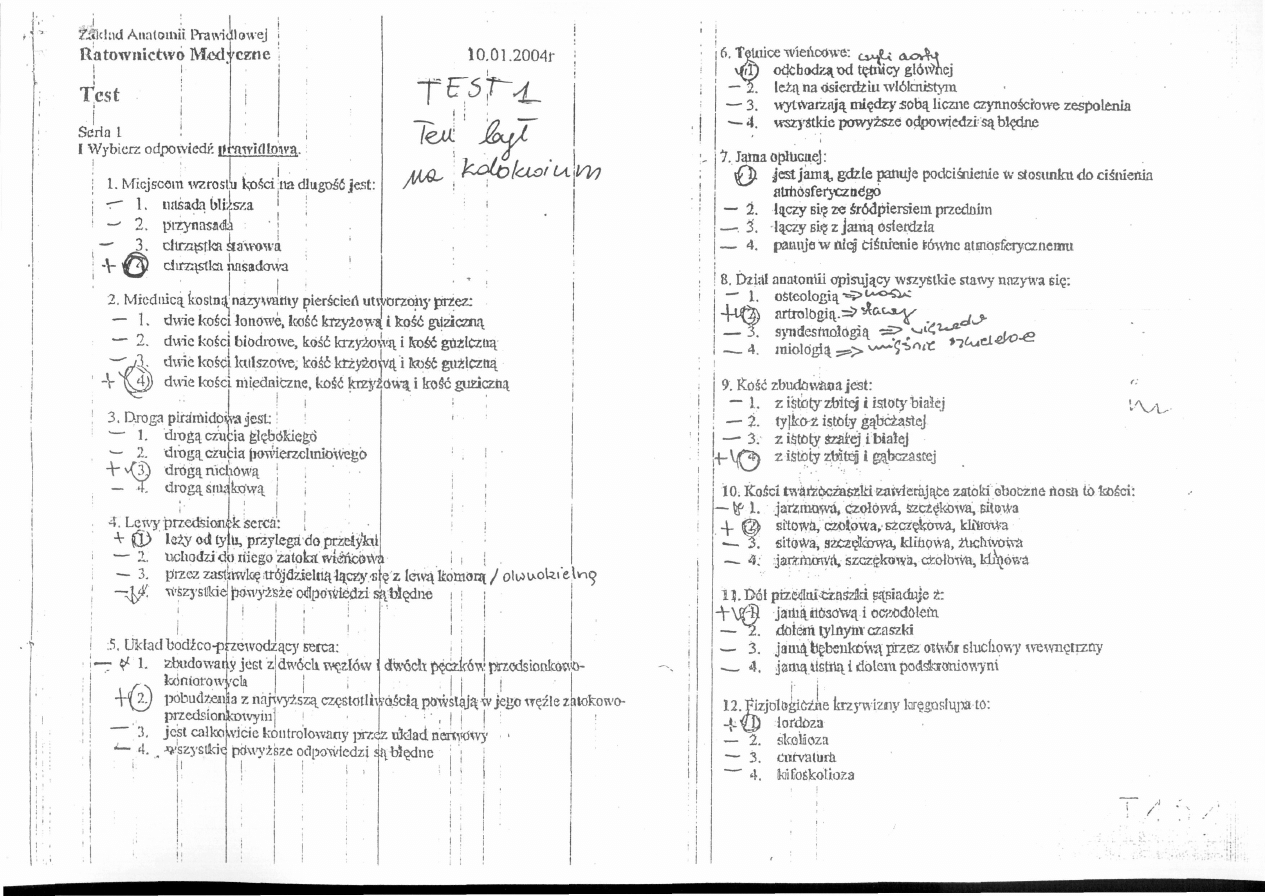 Zakład Anatomii Prawidłowej
Ratownictwo Medyczne
10.01.2004r
Test
TEST 1
Ten był
na kolokwium
Seria 1
I Wybierz odpowiedź prawidłową.
1. Miejscem wzrostu kości na długość jest:
— 1. nasada bliższa
— 2. przynasada
— 3. chrząstka stawowa
+ 4 chrząstka nasadowa
2. Miednicą kostną nazywamy pierścień utworzony przez:
— 1. dwie kości łonowe, kość krzyżową i kość guziczną
— 2. dwie kości biodrowe, kość krzyżową i kość guziczną
— 3. dwie kości kulszowe, kość krzyżową i kość guziczną
+ 4) dwie kości miedniczne, kość krzyżową i kość guziczną
3. Droga piramidowa jest:
— 1. drogą czucia głębokiego
— 2. drogą czucia powierzchniowego
+ 3) drogą ruchową
— 4. drogą smakową
4. Lewy przedsionek serca:
+ 1) leży od tyłu, przylega do przełyku
— 2. uchodzi do niego zatoka wieńcowa
— 3. przez zastawkę trójdzielną łączy się z lewą komorą / dwudzielną
— 4. wszystkie powyższe odpowiedzi są błędne
5. Układ bodźco-przewodzący serca:
— 1. zbudowany jest z dwóch węzłów i dwóch pęczków przedsionkowo-
komorowych
+ 2. pobudzenia z najwyższą częstotliwością powstają w jego węźle zatokowo-
przedsionkowym
— 3. jest całkowicie kontrolowany przez układ nerwowy
— 4. wszystkie powyższe odpowiedzi są błędne
6. Tętnice wieńcowe: czyli aorty
1) odchodzą od tętnicy głównej
— 2. leżą na osierdziu włóknistym
— 3. wytwarzają między sobą liczne czynnościowe zespolenia
— 4. wszystkie powyższe odpowiedzi są błędne
7. Jama opłucnej:
1. jest jamą, gdzie panuje podciśnienie w stosunku do ciśnienia
atmosferycznego
— 2. łączy się ze śródpiersiem przednim
— 3. łączy się z jamą osierdzia
— 4. panuje w niej ciśnienie równe atmosferycznemu
8. Dział anatomii opisujący wszystkie stawy nazywa się:
— 1. osteologią => kości
+ 2. artrologią => stawy
— 3. syndesmologią => więzadło
— 4. miologią => mięśnie szkieletowe
9. Kość zbudowana jest:
— 1. z istoty zbitej i istoty białej
— 2. tylko z istoty gąbczastej
— 3. z istoty szarej i białej
+ 4 z istoty zbitej i gąbczastej
10. Kości twarzoczaszki zawierające zatoki oboczne nosa to kości:
— 1. jarzmowa, czołowa, szczękowa, sitowa
+ 2 sitowa, czołowa, szczękowa, klinowa
— 3. sitowa, szczękowa, klinowa, żuchwowa
— 4. jarzmowa, szczękowa, czołowa, klinowa
11. Dół przedni czaszki sąsiaduje z:
+ 1 jamą nosową i oczodołem
— 2. dołem tylnym czaszki
— 3. jamą bębenkową przez otwór słuchowy wewnętrzny
— 4. jamą ustną i dołem podskroniowym
12. Fizjologiczne krzywizny kręgosłupa to:
+ 1 lordoza
— 2. skolioza
— 3. curvatura
— 4. kifoskolioza